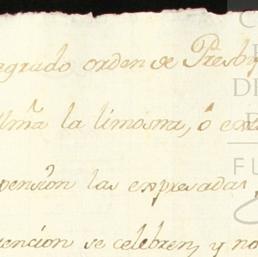 egrado orden de Presby
la limosna, ó
pension las expresadas
encion se celebren, y no